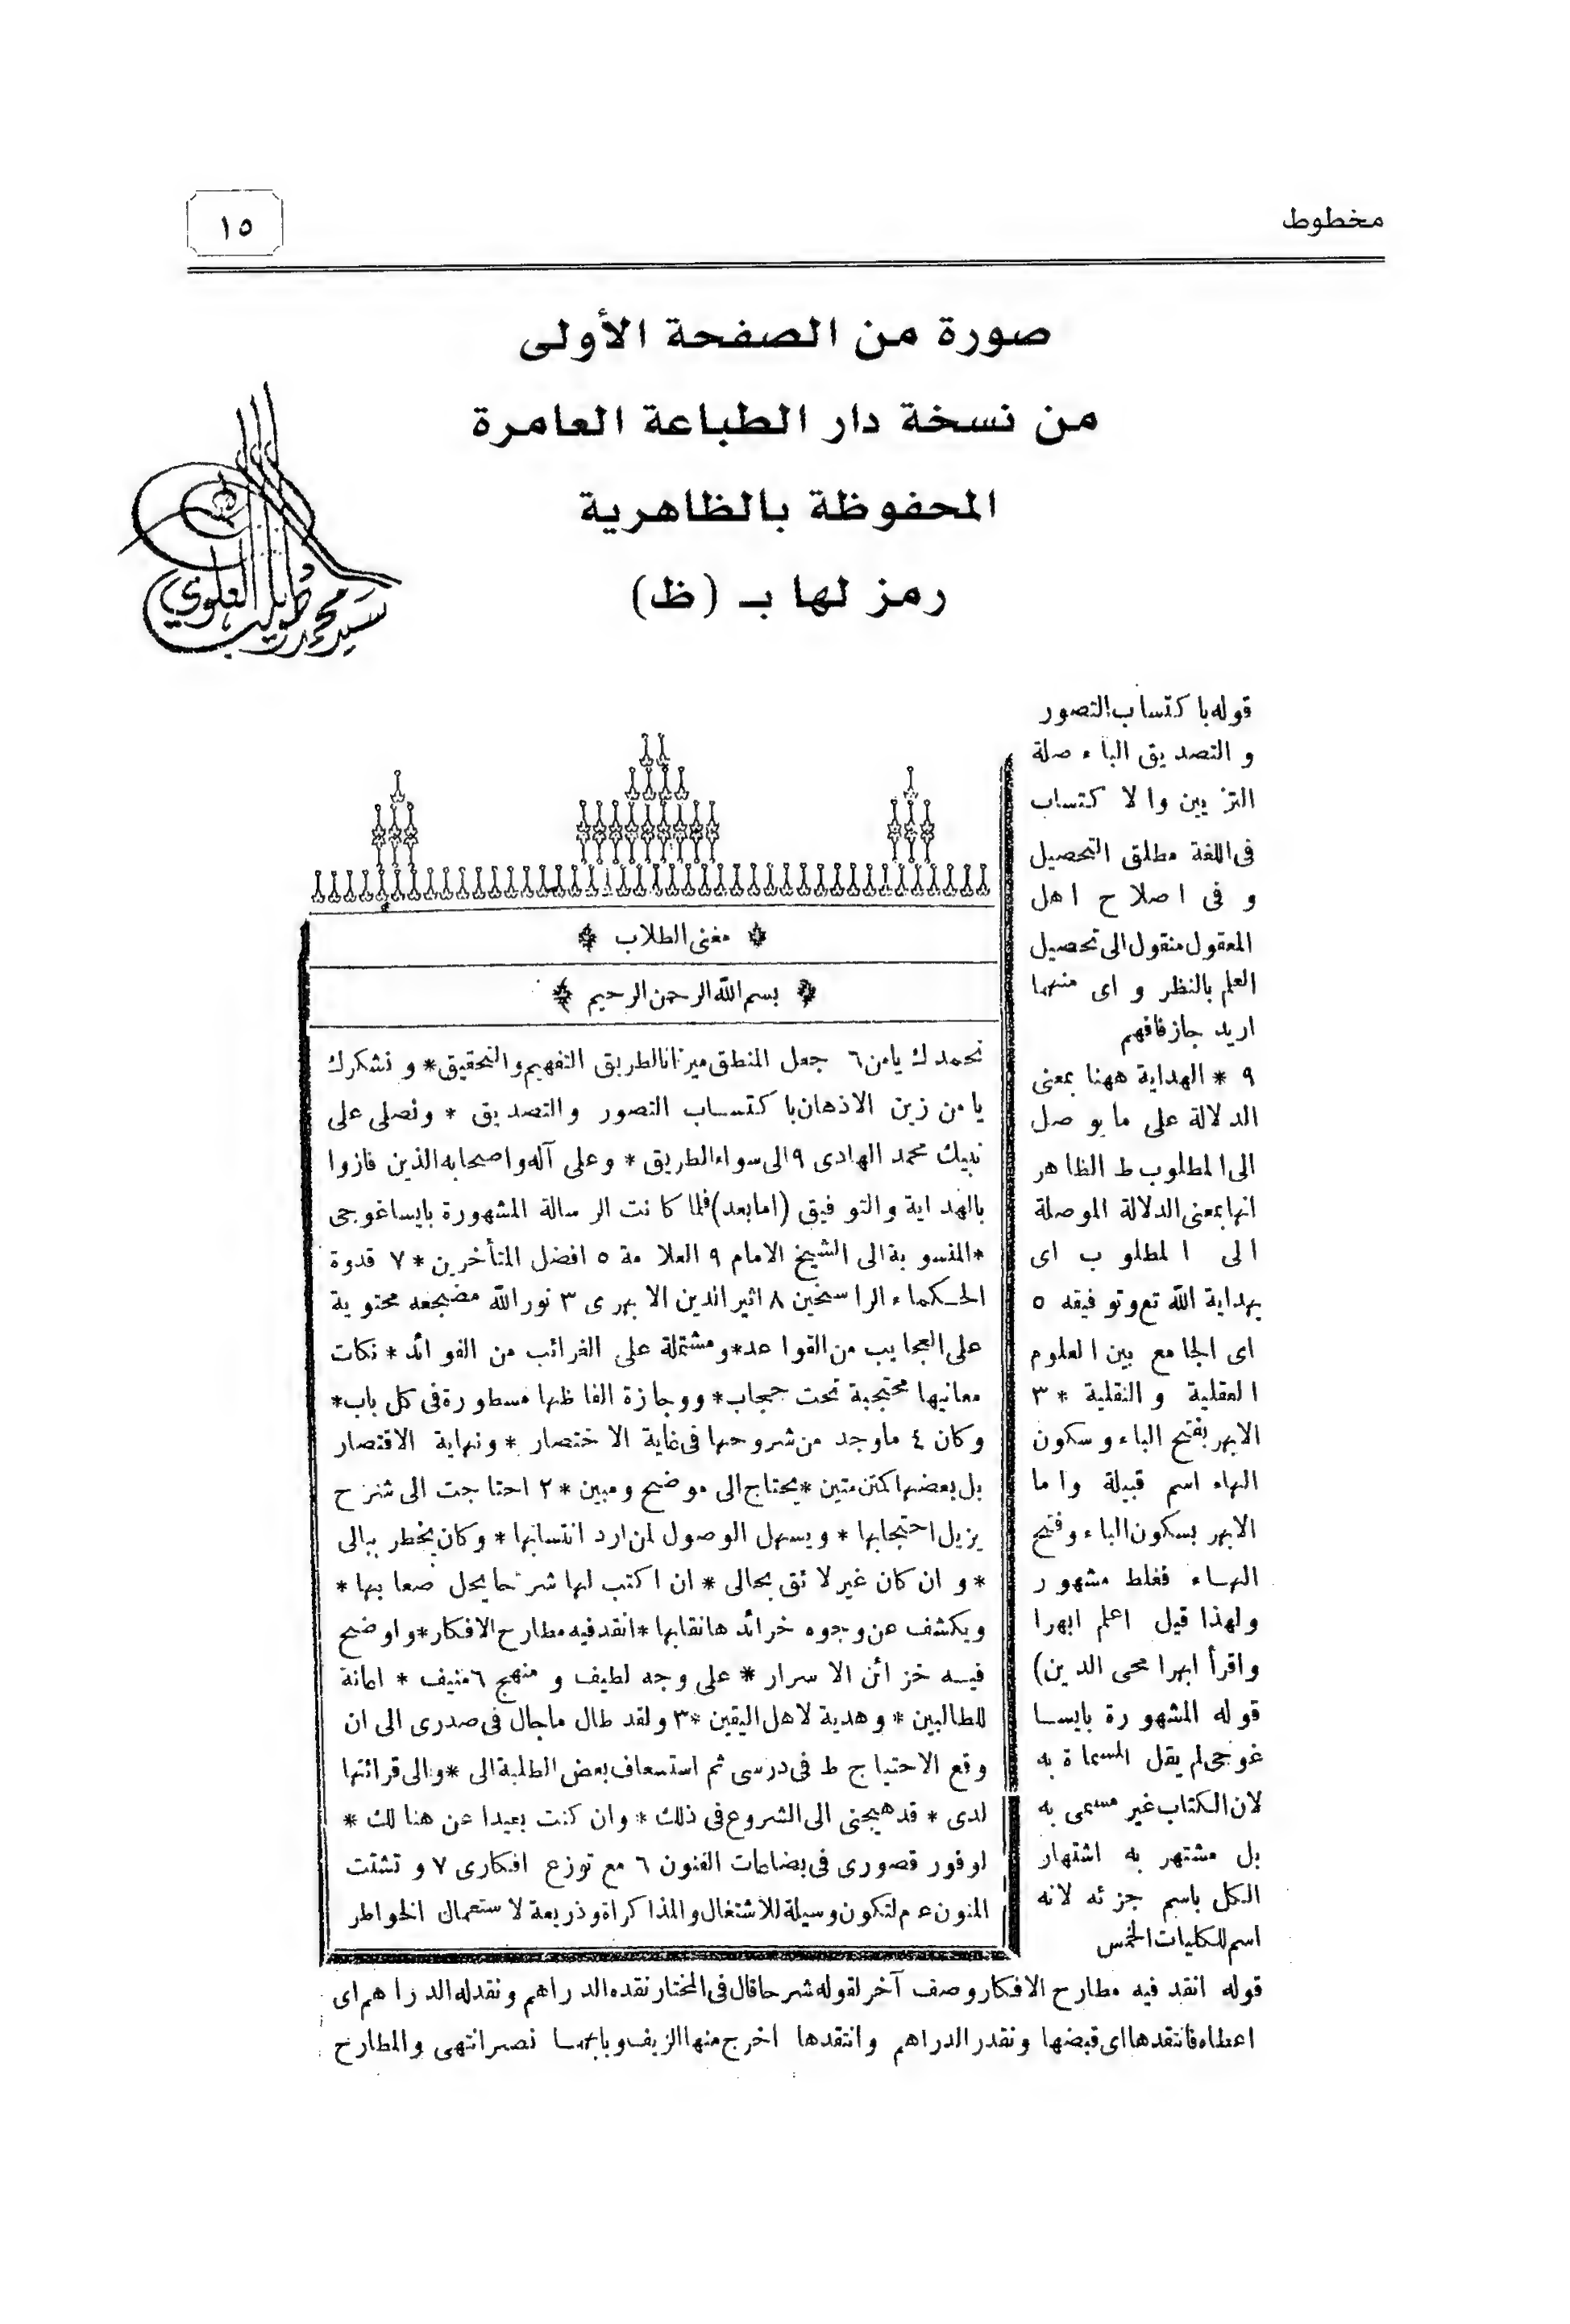 مخطوط
١٥
صورة من الصفحة الأولى
من نسخة دار الطباعة العامرة
المحفوظة بالظاهرية
رمز لها بـ (ظ)
سيد محمد طالب العلوي
قوله باكتساب التصور
والتصديق الباء صلة
التزيين والاكتساب
فى اللغة مطلق التحصيل
وفى اصلاح اهل
المعقول منقول الى تحصيل
العلم بالنظر واى منهما
اريد جاز فافهم
٩ * الهداية ههنا بمعنى
الدلالة على ما يوصل
الى المطلوب ط الظاهر
انها بمعنى الدلالة الموصلة
الى المطلوب اى
بهداية الله تع وتوفيقه ٥
اى الجامع بين العلوم
العقلية والنقلية * ٣
الابهر بفتح الباء وسكون
الهاء اسم قبيلة واما
الابهر بسكون الباء وفتح
الهاء فغلط مشهور
ولهذا قيل اعلم ابهرا
واقرأ ابهرا محى الدين)
قوله المشهورة بايسا
غوجى لم يقل المسماة به
لان الكتاب غير مسمى به
بل مشتهر به اشتهار
الكل باسم جزئه لانه
اسم للكليات الخمس
* مغنى الطلاب *
* بسم الله الرحمن الرحيم *
نحمدك يامن ٦ جعل المنطق ميزانا لطريق التفهيم والتحقيق * ونشكرك
يا من زين الاذهان باكتساب التصور والتصديق * ونصلى على
نبيك محمد الهادى ٩ الى سواء الطريق * وعلى آله واصحابه الذين فازوا
بالهداية والتوفيق (اما بعد) فلما كانت الرسالة المشهورة بايساغوجى
* المنسوبة الى الشيخ الامام ٩ العلامة ٥ افضل المتأخرين * ٧ قدوة
الحكماء الراسخين ٨ اثير الدين الابهرى ٣ نور الله مضجعه محتوية
على العجايب من القواعد * ومشتملة على الغرائب من الفوائد * نكات
معانيها محتجبة تحت حجاب * ووجازة الفاظها مسطورة فى كل باب *
وكان ٤ ما وجد من شروحها فى غاية الاختصار * ونهاية الاقتصار
بل بعضها كمتن متين * يحتاج الى موضح ومبين * ٢ احتاجت الى شرح
يزيل احتجابها * ويسهل الوصول لمن ارد انتسابها * وكان يخطر ببالى
* وان كان غير لائق بحالى * ان اكتب لها شرحا يحل صعابها *
ويكشف عن وجوه خرائدها نقابها * انقد فيه مطارح الافكار * واوضح
فيه خزائن الاسرار * على وجه لطيف ومنهج ٦ منيف * اعانة
للطالبين * وهدية لاهل اليقين * ٣ ولقد طال ماجال فى صدرى الى ان
وقع الاحتياج ط فى درسى ثم استسعاف بعض الطلبة الى * والى قرائتها
لدى * قد هيجنى الى الشروع فى ذلك * وان كنت بعيدا عن هنالك *
لوفور قصورى فى بضاعات الفنون ٦ مع توزع افكارى ٧ وتشتت
المنون ء م لتكون وسيلة للاشتغال والمذاكراة وذريعة لاستعمال الخواطر
قوله انقد فيه مطارح الافكار وصف آخر لقوله شرحا قال فى المختار نقده الدراهم ونقد له الدراهم اى
اعطاه فانتقدها اى قبضها ونقدر الدراهم وانتقدها اخرج منها الزيف وبابهما نصر انتهى والمطارح